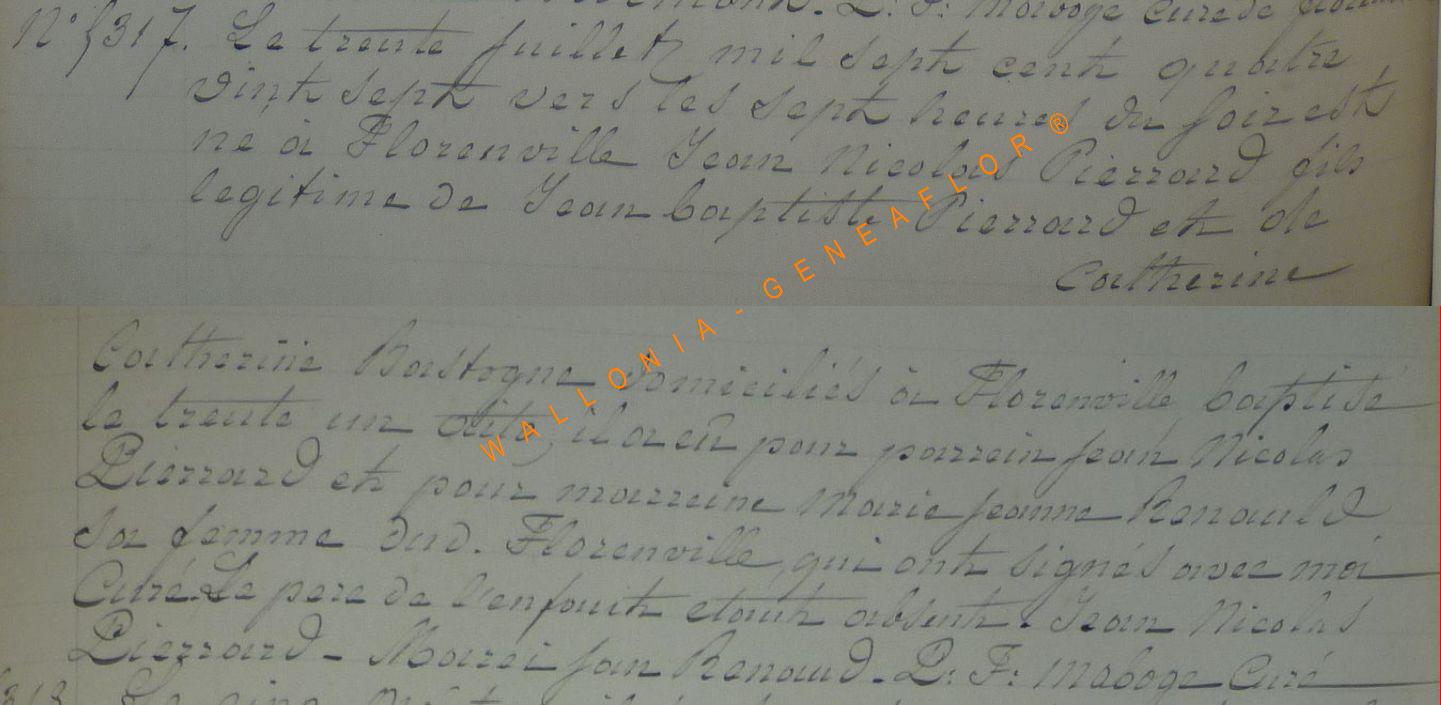 L: F: Maboge Curé de
N° 5317. Le trente juillet mil sept cent quatre
vint sept vers les sept heures du soir est
né à Florenville Jean Nicolas Pierrard fils
legitime de Jean baptiste Pierrard et de
Catherine
Catherine Bastogne domiciliés à Florenville baptisé
le trente un dito, il a eu pour parrein jean Nicolas
Pierrard et pour marreine Marie jeanne Renauld
sa femme dud. Florenville, qui ont signés avec moi
Curé. Le pere de l'enfant etant absent. Jean Nicolas
Pierrard - Marei jan Renaud. L: F: Maboge Curé
WALLONIA - GENEAFLOR ®
Le cinq